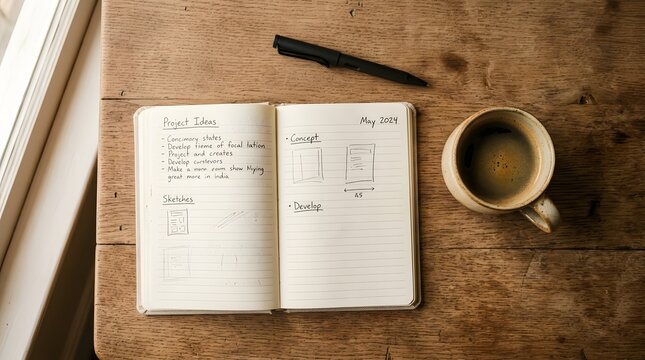 Project Ideas
- Concimory states
- Develop theme of focal tation
- Project and creates
- Develop curslevors
- Make a more room show
great more in india
Sketches
May 2024
• Concept
A5
• Develop